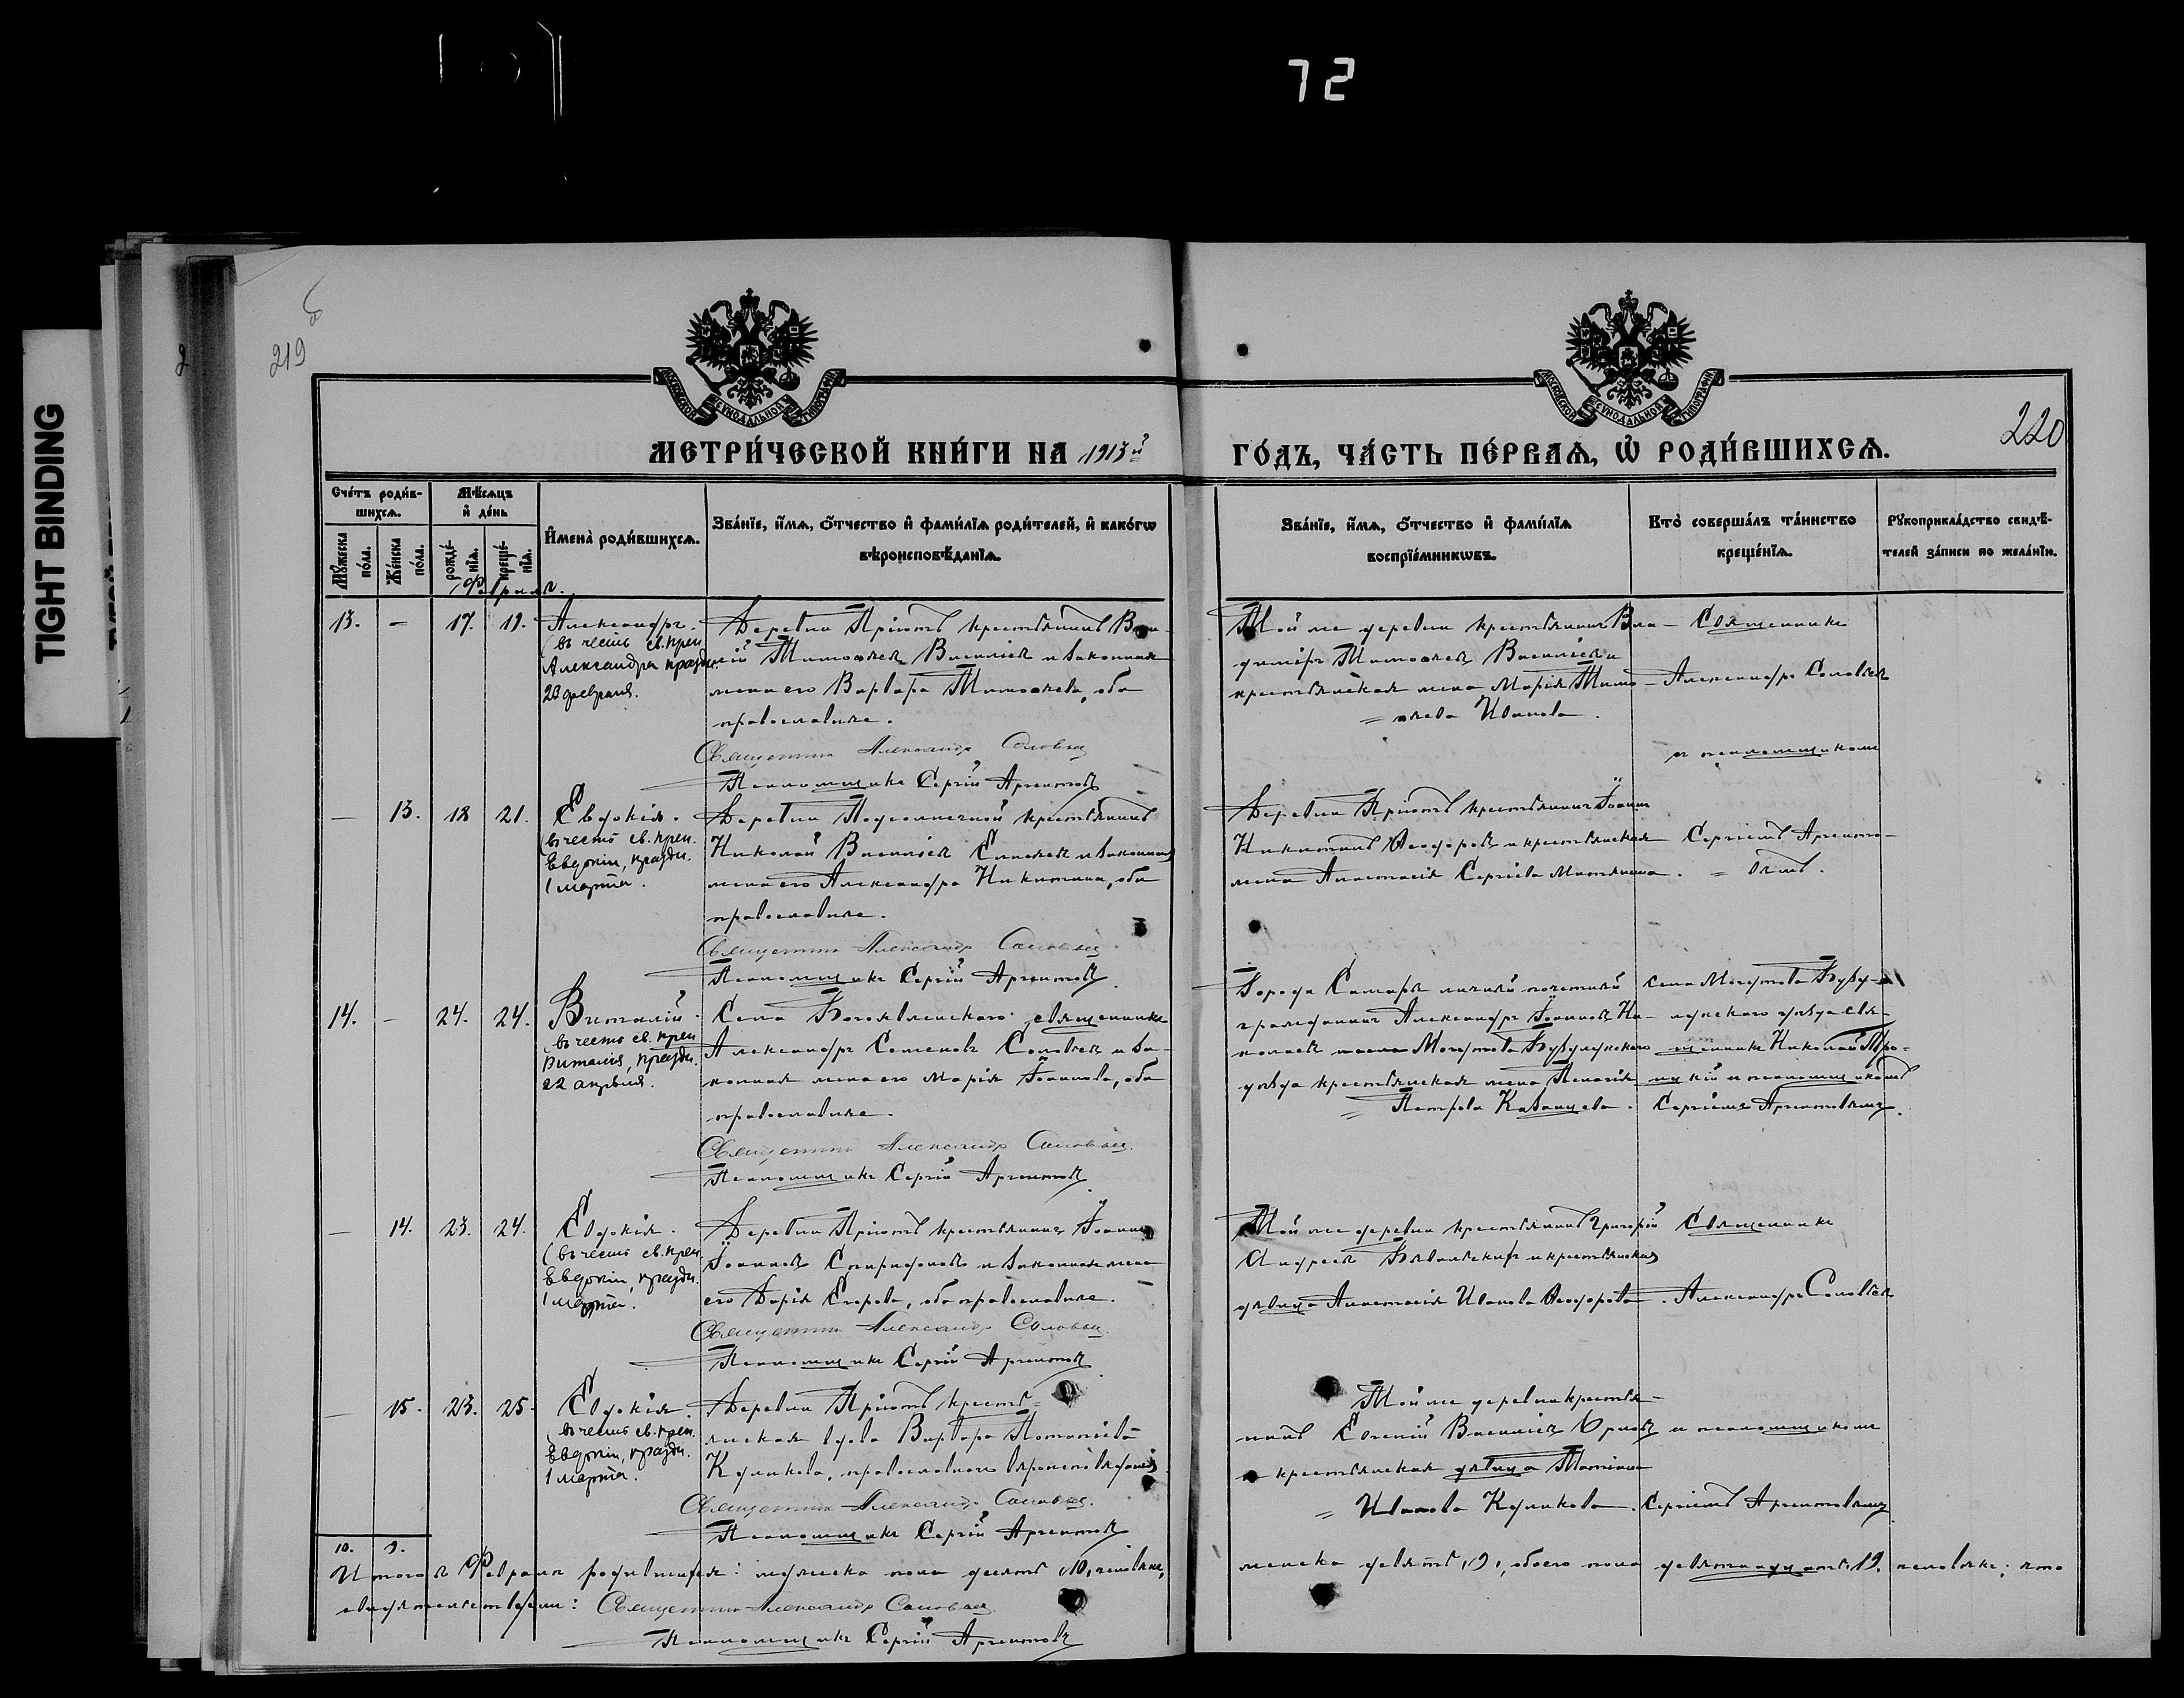 72
TIGHT BINDING
219
220
МОСКОВСКОЙ СѴНОДАЛЬНОЙ ТИПОГРАФІИ
МОСКОВСКОЙ СѴНОДАЛЬНОЙ ТИПОГРАФІИ
МЕТРИ́ЧЕСКОЙ КНИ́ГИ НА 1913й
ГО́ДЪ, ЧА́СТЬ ПЕ́РВАѦ, Ѡ҆ РОДИ́ВШИХСѦ.
Сче́тъ роди́в-
шихсѧ.
Мꙋ́жеска по́ла.
Же́нска по́ла.
Мѣ́сѧцъ
и҆ де́нь
рожде́нїѧ.
креще́нїѧ.
И҆мена̀ роди́вшихсѧ.
Зва́нїе, и҆́мѧ, ѻ҆́тчество и҆ фами́лїѧ роди́телей, и҆ како́гѡ
вѣроисповѣ́данїѧ.
Зва́нїе, и҆́мѧ, ѻ҆́тчество и҆ фами́лїѧ
воспрїе́мникѡвъ.
Кто̀ соверша́лъ та́инство
креще́нїѧ.
Рꙋкоприкла́дство свидѣ́-
телей за́писи по жела́нїю.
Февраль.
13. — 17. 19. Александръ.
(въ честь св. преп.
Александра праздн.
23 февраля.
Деревни Пріютъ крестьянинъ
Тимоѳеев Василіев и законная
жена его Варвара Тимоѳеева, оба
православные.
Священник Александр Соловьев
Псаломщикъ Сергій Аргентовъ
Той же деревни крестьянинъ Вла-
димiръ Тимоѳеев Васильев и
крестьянская жена Марія Тимо-
ѳеева Иванова.
Священникъ
Александръ Соловьев
и псаломщиком
— 13. 18 21. Евдокія.
(въ честь св. преп.
Евдокіи, праздн.
1 марта.
Деревни Подсолнечной крестьянинъ
Николай Василіев и законная
жена его Александра Никитина, оба
православные.
Священник Александр Соловьев
Псаломщикъ Сергій Аргентовъ
Деревни Пріютъ крестьянинъ Іоанн
Никитинъ Ѳеодоров и крестьянская
жена Анастасія Сергіева
Сергіемъ Аргенто-
вымъ.
14. — 24. 24. Виталій.
(въ честь св. преп.
Виталія, праздн.
22 апрѣля.
Села Богоявленского священникъ
Александръ Семеновъ Соловьев и за-
конная жена его Марія Іоаннова, оба
православные.
Священник Александр Соловьев
Псаломщикъ Сергій Аргентовъ
Города Самары личный почетный
гражданинъ Александръ Іоаннов Ни-
колаев Могутова Бузулукского
уѣзда крестьянская жена Пелагія
Петрова
Села Могутова Бузу-
лукского уѣзда свя-
щенникъ Николай Тро-
ицкій и псаломщикомъ
Сергіемъ Аргентовымъ.
— 14. 23. 24. Евдокія.
(въ честь св. преп.
Евдокіи, праздн.
1 марта.
Деревни Пріютъ крестьянинъ Іоанн
Іоаннов Спиридонов и законная жена
его Дарія Егорова, оба православные.
Священник Александр Соловьев
Псаломщикъ Сергій Аргентовъ
Той же деревни крестьянинъ Григорій
Андреев и крестьянская
дѣвица Анастасія Иванова Ѳеодорова.
Священникъ
Александръ Соловьев
— 15. 23. 25. Евдокія.
(въ честь св. преп.
Евдокіи, праздн.
1 марта.
Деревни Пріютъ кресть-
янская вдова Варвара
Куликова, православного вѣроисповѣданія
Священник Александр Соловьев.
Псаломщикъ Сергій Аргентовъ
Той же деревни крестья-
нинъ Евгеній Василіев Орлов
и крестьянская дѣвица Татіана
Иванова Куликова.
и псаломщиком
Сергіемъ Аргентовымъ
10. 9.
Итого в Феврале родившихся: мужеска пола десять 10, человѣкъ,
женска девять, 9, обоего пола девятнадцать, 19. человѣкъ; что
свидѣтельствуем: Священник Александр Соловьев
Псаломщикъ Сергій Аргентовъ